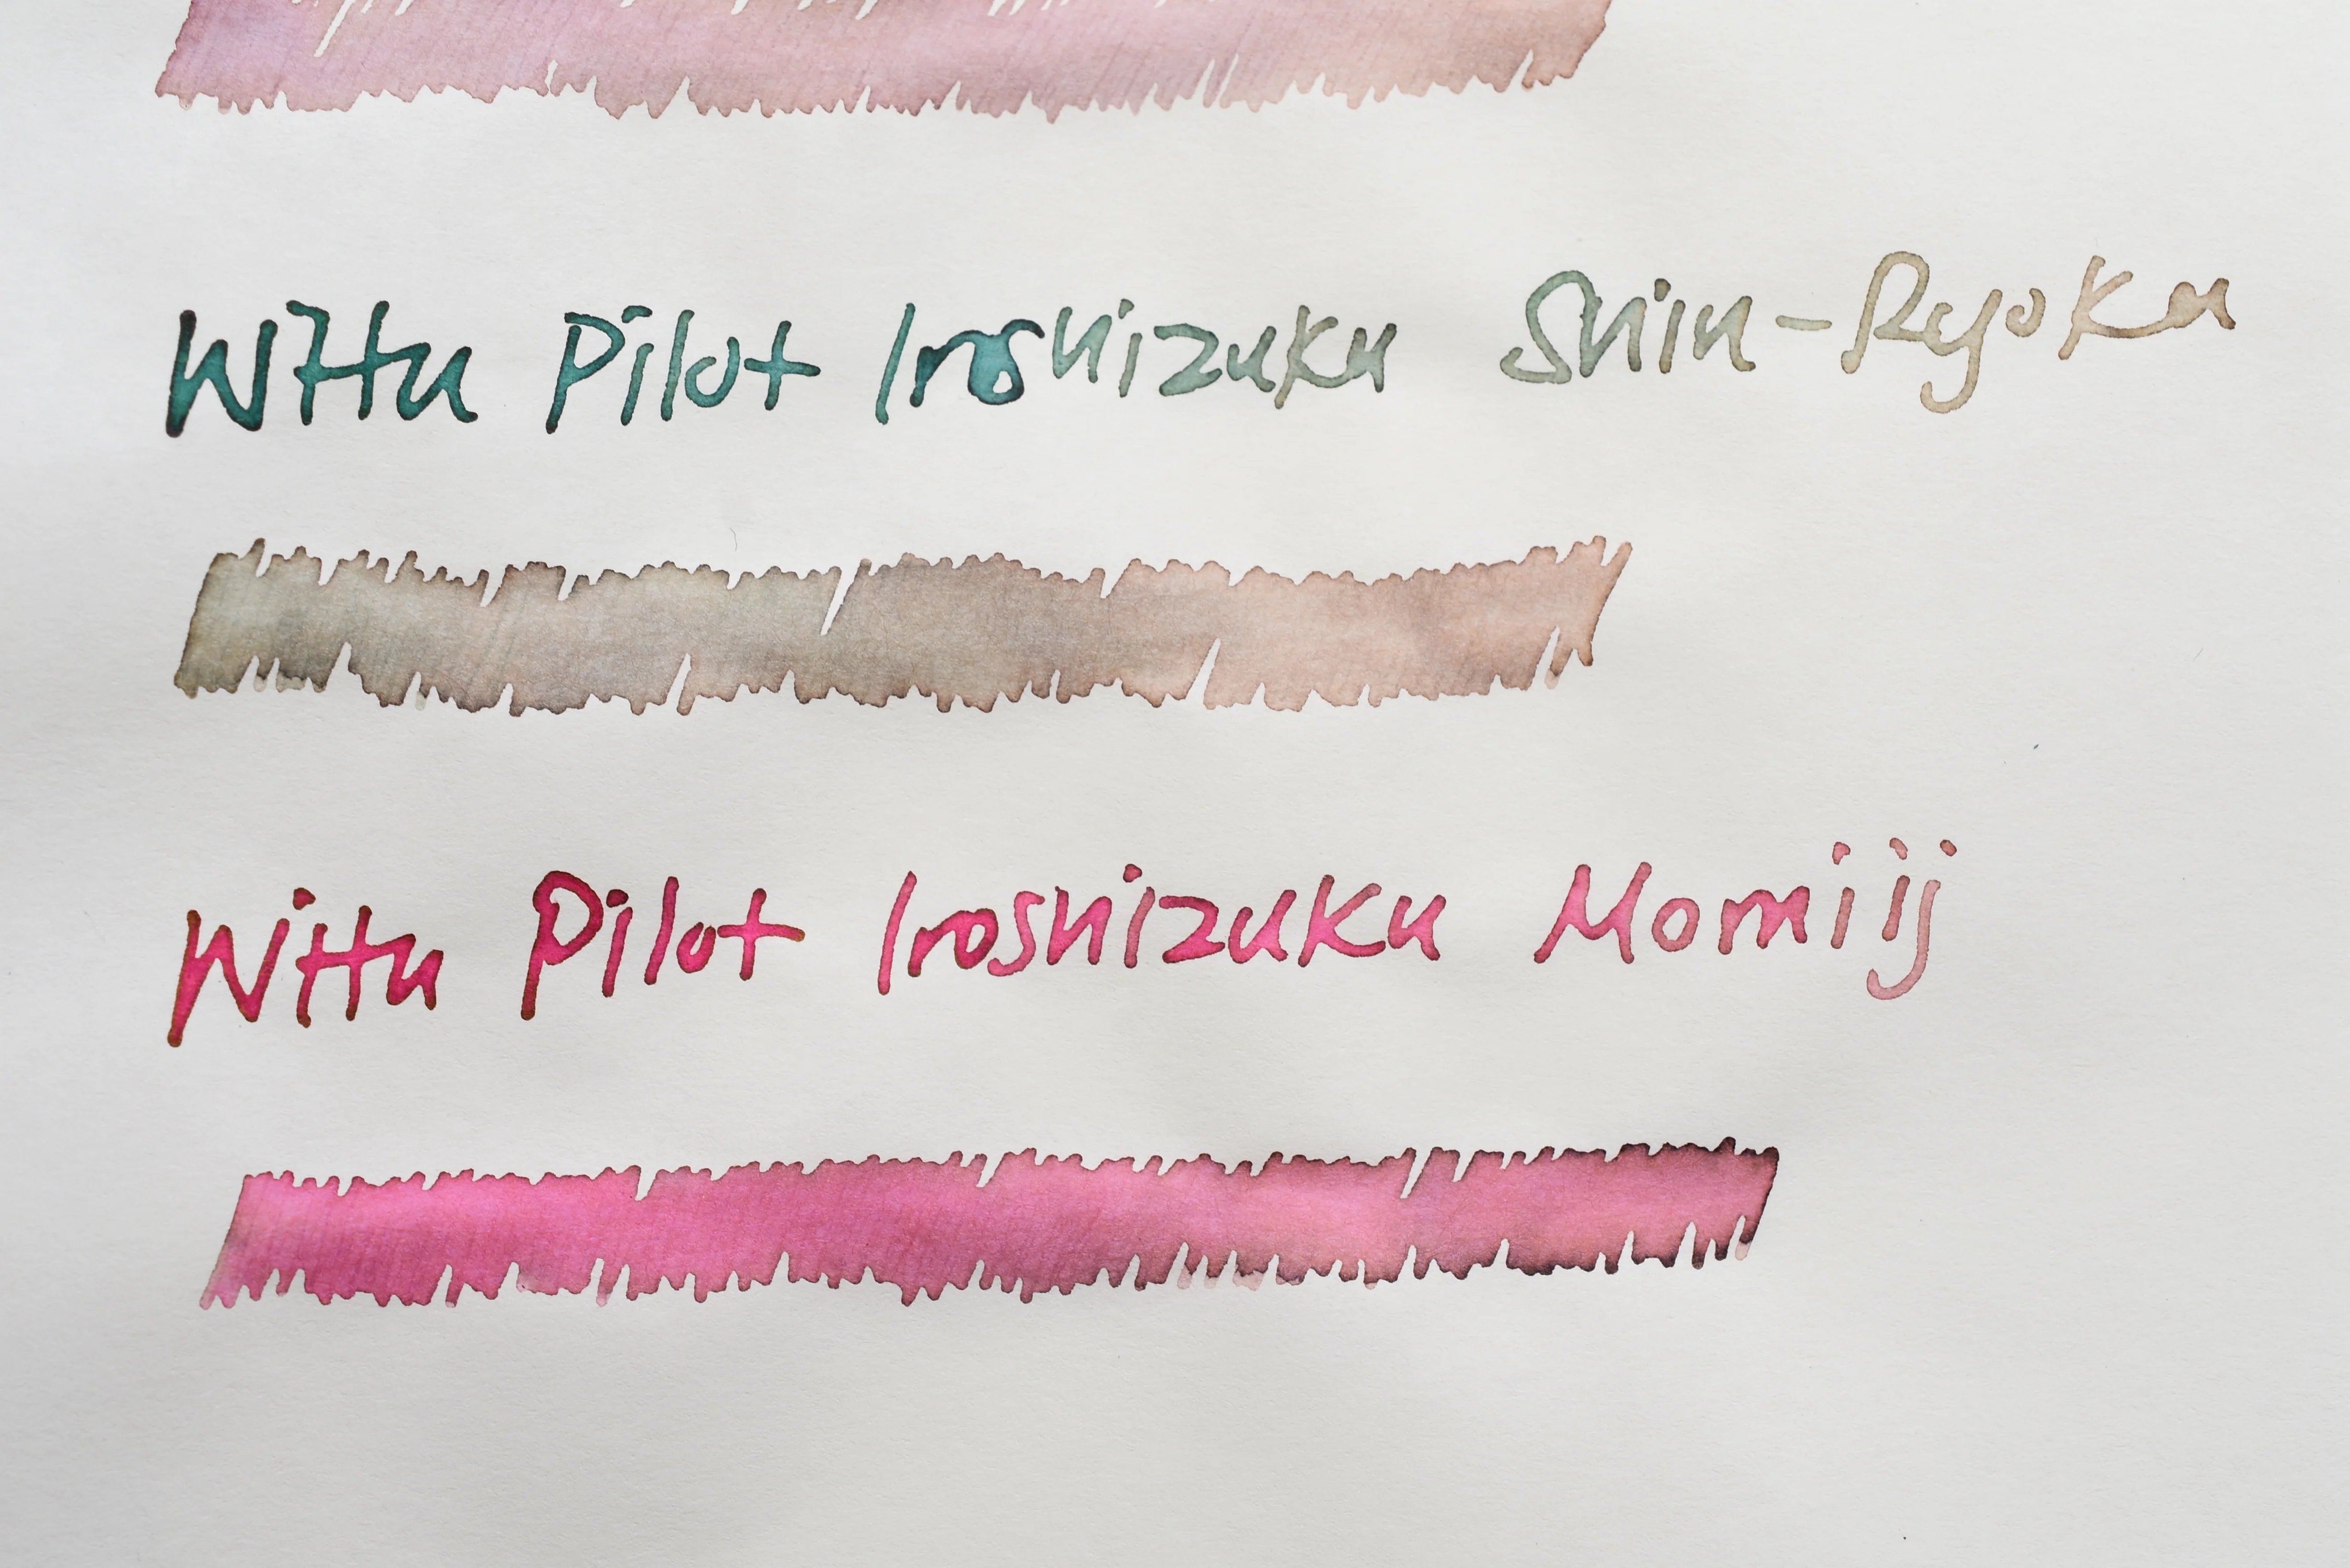 With Pilot Iroshizuku Shin-Ryoku
With Pilot Iroshizuku Momiji